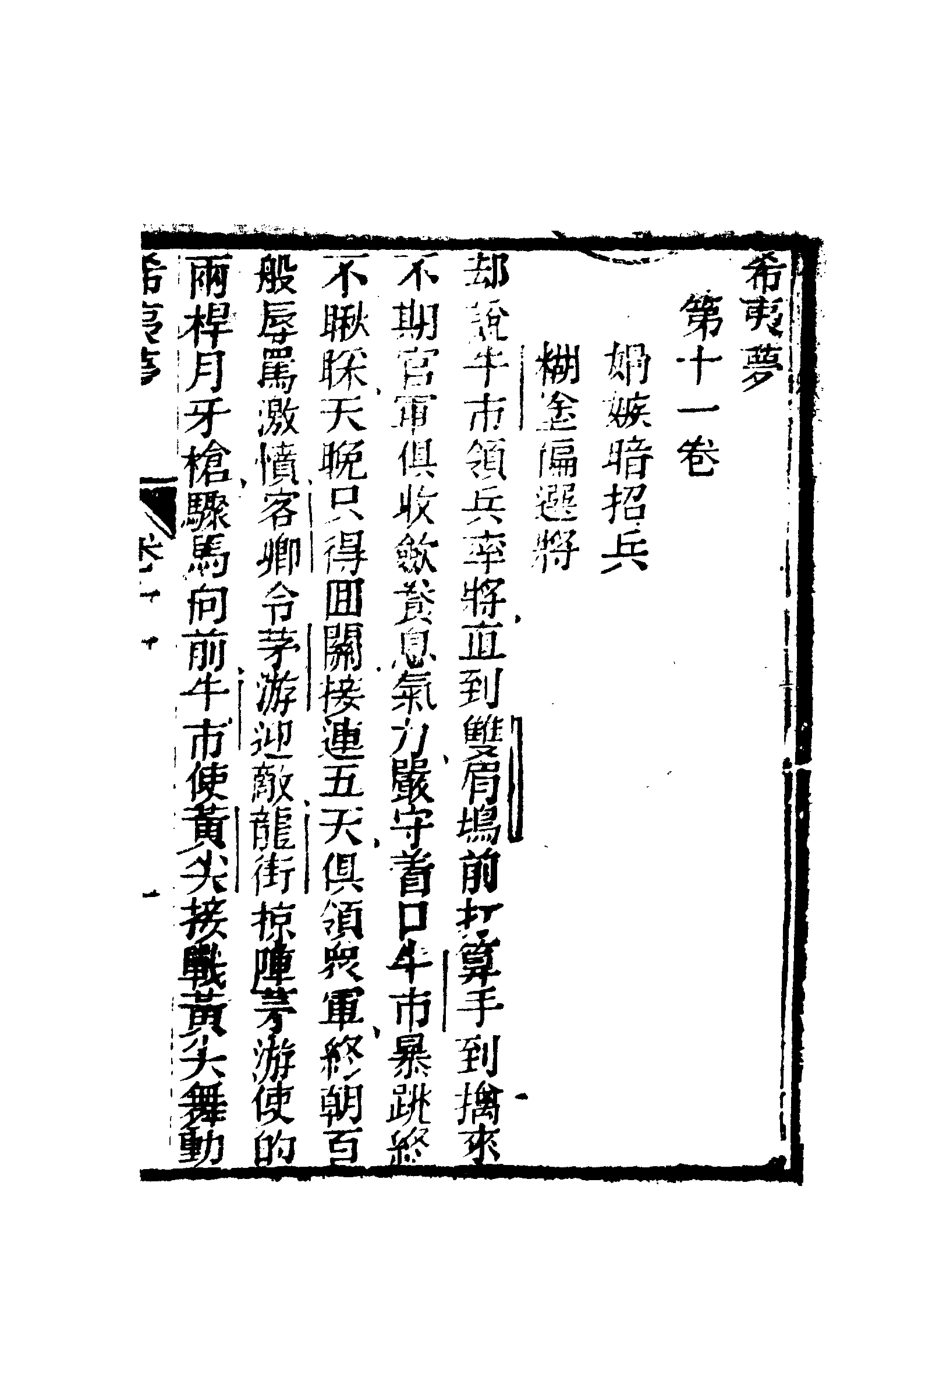 希夷夢
第十一卷
娟嫉暗招兵
糊塗偏選將
却說牛市領兵率將直到雙眉塢前打算手到擒來
不期官軍俱收斂養息氣力嚴守着口牛市暴跳終
不瞅睬天晚只得囬關接連五天俱領衆軍終朝百
般辱罵激憤客卿令茅游迎敵龍街掠陣茅游使的
兩桿月牙槍驟馬向前牛市使黃尖接戰黃尖舞動
希夷夢 卷十一 一